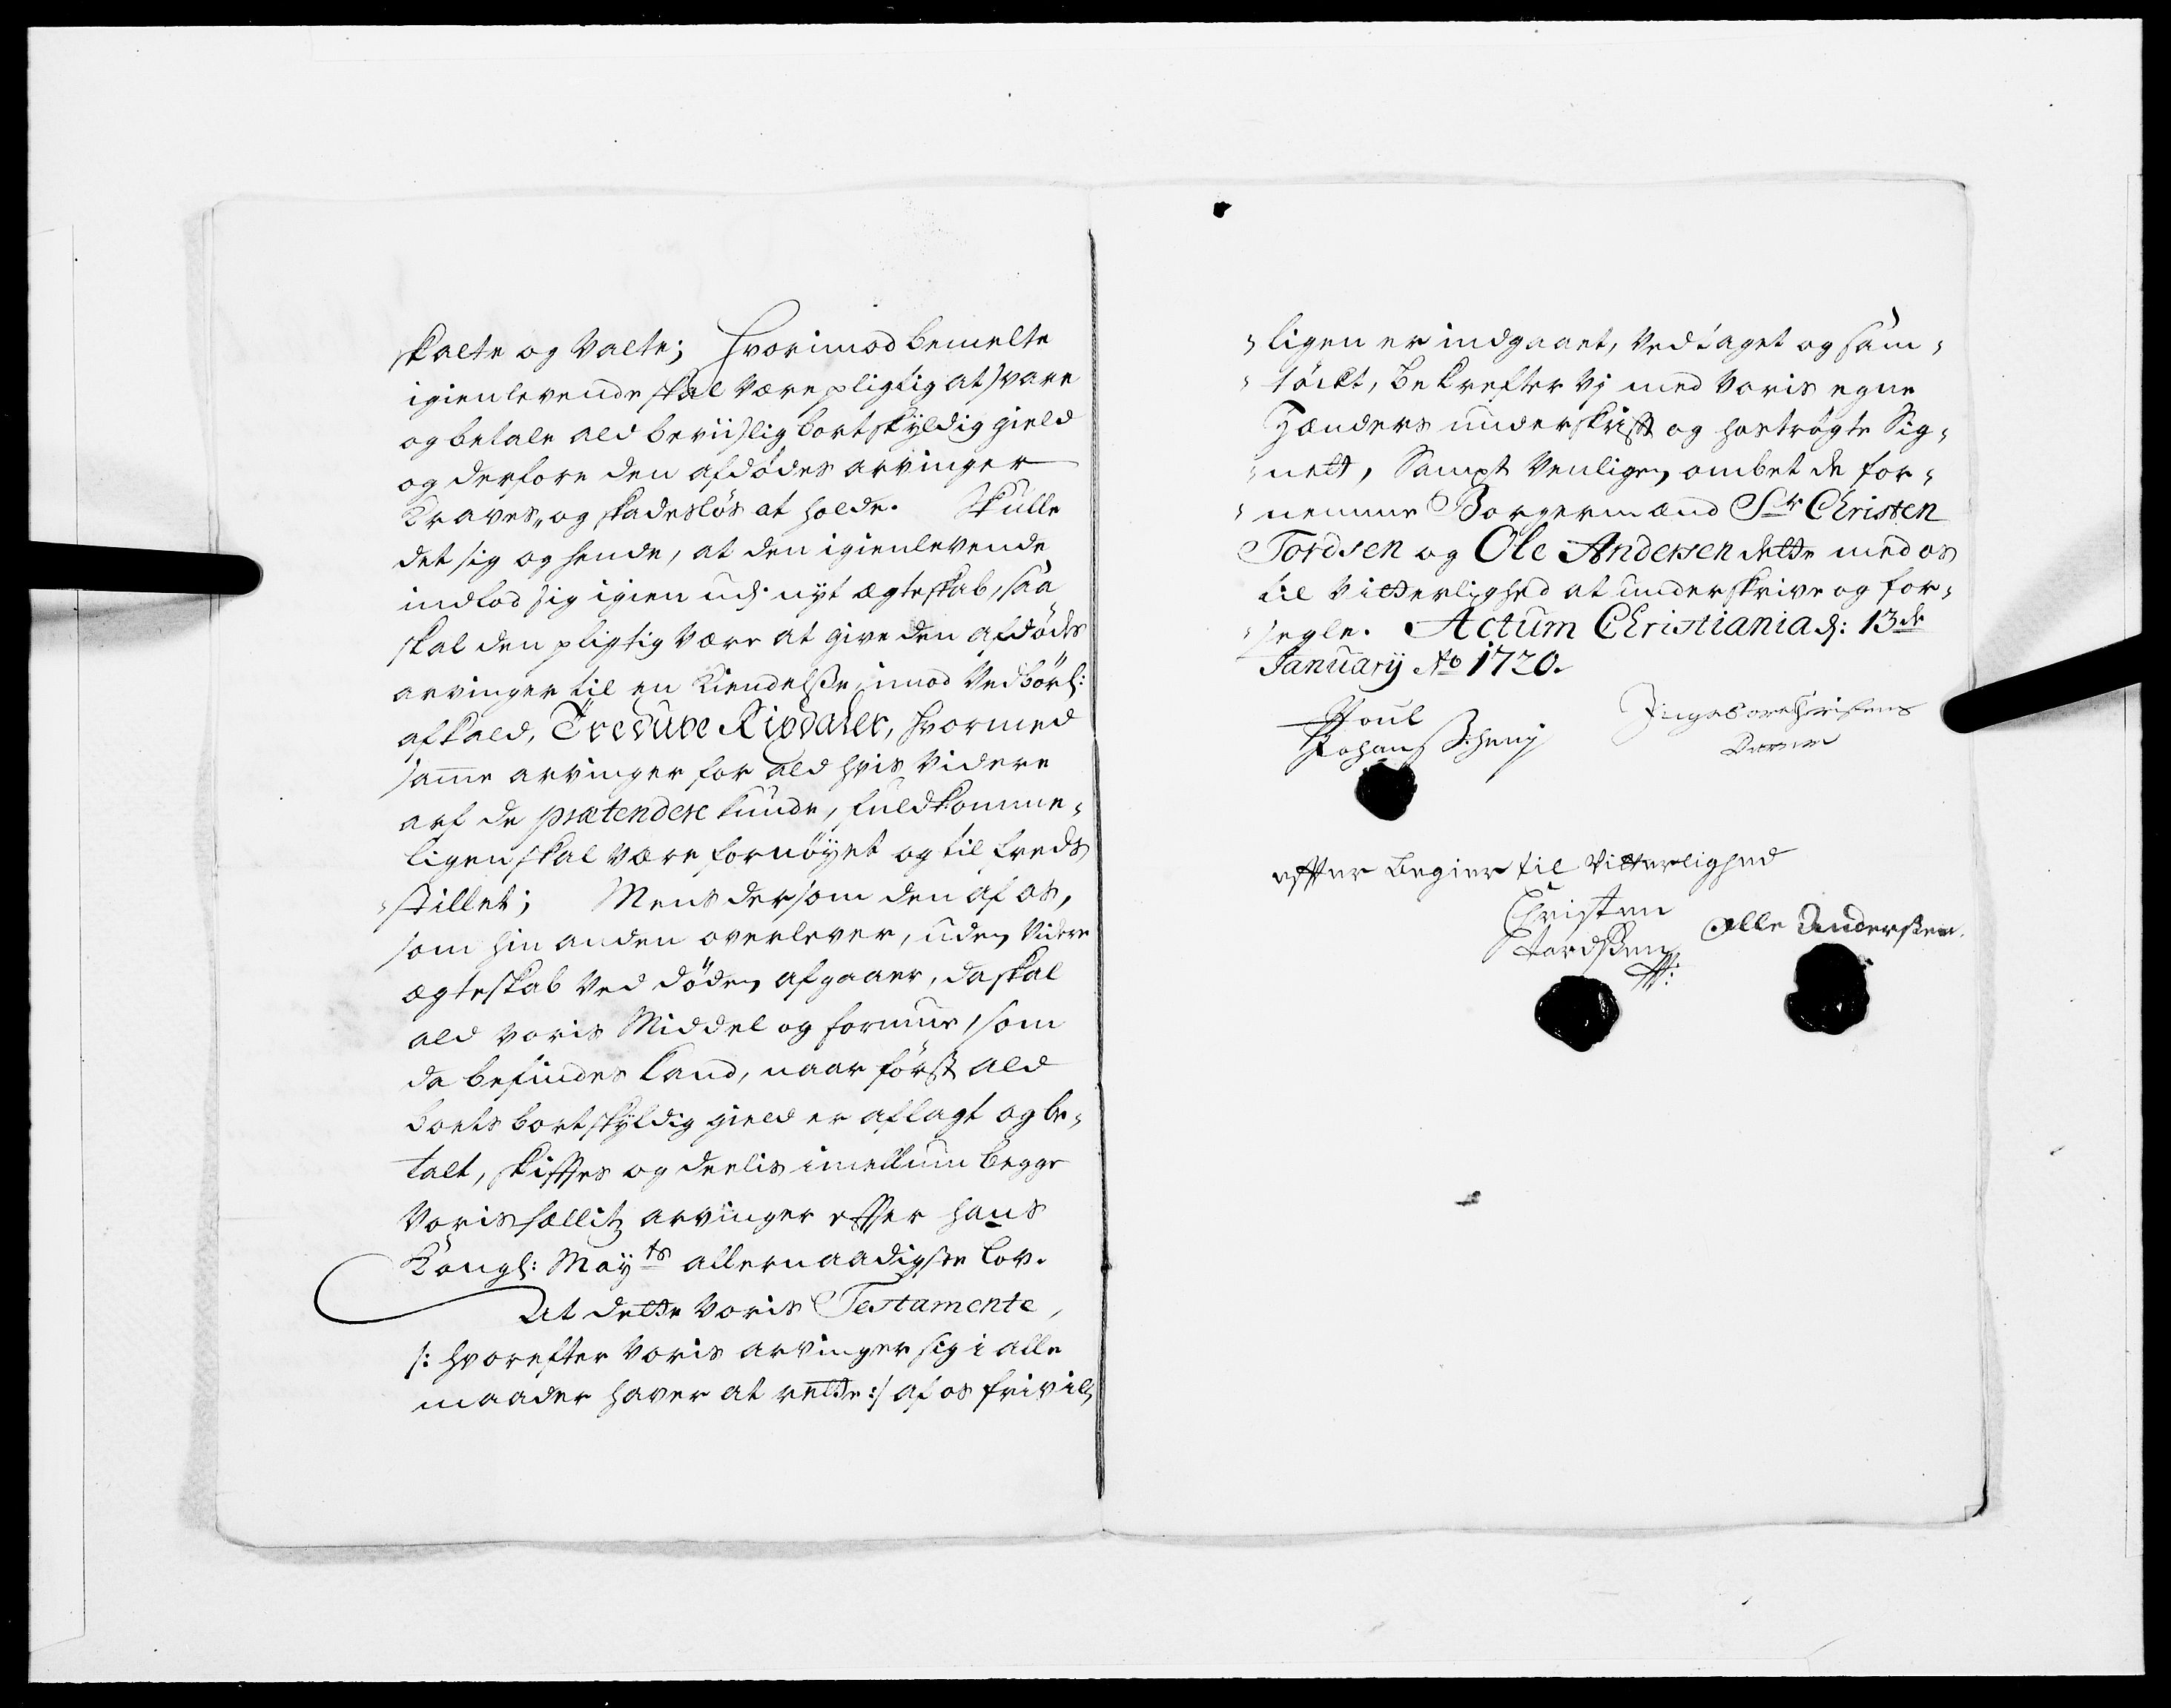 skalte og Valte; Hvorimod bemelte
igienlevende skal Være pligtig at svare
og betale ald beviislig bortskyldig gield
og derfore den afdødes arvinger
Kraves- og skadesløs at holde. Skulle
det sig og hende, at den igienlevende
indlod sig igien udj nyt ægteskab, saa
skal den pligtig Være at give den afdødes
arvinger til en Kiendelsse, imod Vedbørl:
afkald, Treduve Rixdaler, hvormed
samme arvinger for ald hvis Videre
arf de prætendere kunde, fuldkomme-
ligen skal Være fornøyet og til freds
stillet; Mens dersom den af os,
som hin anden overlever, uden Videre
ægteskab Ved døden afgaaer, da skal
ald Voris Middel og formue, som
da befindes kand, naar først ald
boets bortskyldig gield er aflagt og be-
talt, skifftes og deelis imellum begge
Voris fællitz arvinger effter hans
Kongl: Mayts allernaadigste Lov.
At dette Voris Testamente,
/: hvorefter Voris arvinger sig i alle
maader haver at rette :/ af os frivil-
ligen er indgaaet, Vedtaget og sam-
tøckt, bekrefter Vi med Voris egne
Hænders underskrifft og hostrøgte Sig-
nett, Sampt Venligen ombet de for-
nemme Borgermænd Sr Christen
Tordsen og Ole Andersen dette med os
til Vitterlighed at underskrive og for-
segle. Actum Christiania d: 13de
January Ao 1720.
Poul
Johans
Ingebore Christens
Daater
effter Begier til Vitterlighed
Christen
Tordsen
Olle Anderssen.